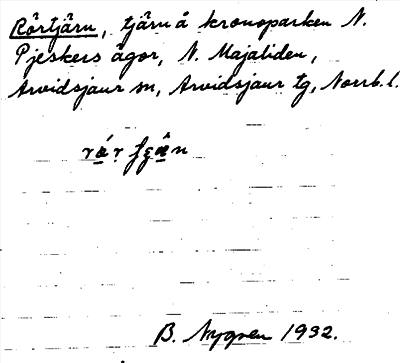 Rörtjärn, tjärn å kronoparken N.
Pjeskers ägor, N. Majaliden,
Arvidsjaur sn, Arvidsjaur tg, Norrb. l.
B. Nygren 1932.